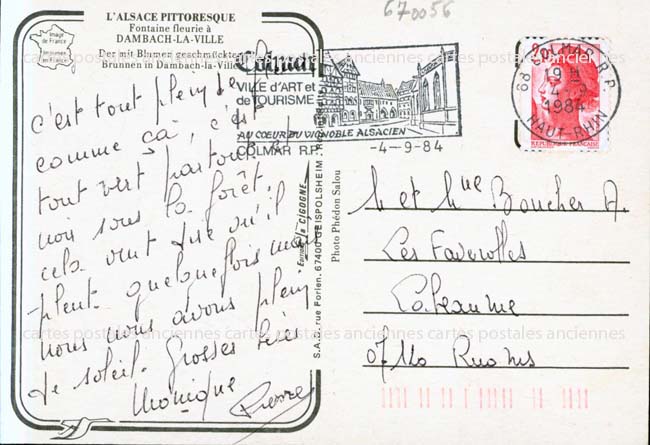 670056
L'ALSACE PITTORESQUE
Fontaine fleurie à
DAMBACH-LA-VILLE
Der mit Blumen geschmückte
Brunnen in Dambach-la-Ville
Image
de France
Imprimée
en France
c'est tout plein de
comme ça, c'est
tout vert partout
noir sous la forêt.
cela veut dire qu'il
pleut quelquefois mais
nous nous avons plein
de soleil. Grosses bises
Monique Pierre
Colmar
VILLE d'ART et
de TOURISME
AU COEUR DU VIGNOBLE ALSACIEN
COLMAR R.P.
-4-9-84
68 COLMAR R.P.
19 H
4-9
1984
HAUT-RHIN
REPUBLIQUE FRANCAISE
Editions la CIGOGNE
S.A.D. rue Forlen, 67400 GEISPOLSHEIM
Photo Phédon Salou
M et Mme Boucher A.
Les Faverolles
07140 Ruoms
cartes postales anciennes cartes postales anciennes cartes postales anciennes